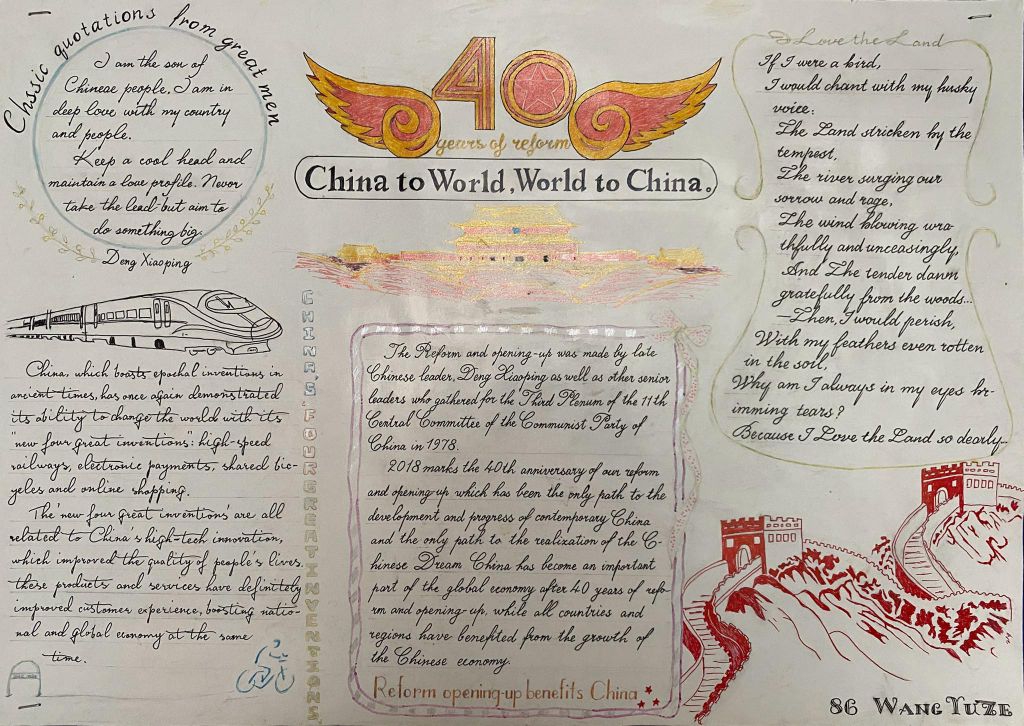 Chssic quotations from great men
I am the son of
Chinese people, I am in
deep love with my country
and people.
Keep a cool head and
maintain a low profile. Never
take the lead-but aim to
do something big.
Deng Xiaoping
40
years of reform
China to World, World to China.
I Love the Land
If I were a bird,
I would chant with my husky
voice:
The Land stricken by the
tempest,
The river surging our
sorrow and rage,
The wind blowing wra-
thfully and unceasingly,
And The tender dawn
gratefully from the woods...
—Then, I would perish,
With my feathers even rotten
in the soil,
Why am I always in my eyes br-
imming tears?
Because I Love the Land so dearly...
China, which boasts epochal inventions in
ancient times, has once again demonstrated
its ability to change the world with its
"new four great inventions": high-speed
railways, electronic payments, shared bic-
ycles and online shopping.
The 'new four great inventions' are all
related to China's high-tech innovation,
which improved the quality of people's lives.
these products and services have definitely
improved customer experience, boosting natio-
nal and global economy at the same
time.
CHINAS FOUR GREAT INVENTIONS
The Reform and opening-up was made by late
Chinese leader, Deng Xiaoping as well as other senior
leaders who gathered for the Third Plenum of the 11th
Central Committee of the Communist Party of
China in 1978.
2018 marks the 40th anniversary of our reform
and opening-up which has been the only path to the
development and progress of contemporary China
and the only path to the realization of the C-
hinese Dream China has become an important
part of the global economy after 40 years of refo-
rm and opening-up, while all countries and
regions have benefited from the growth of
the Chinese economy.
Reform opening-up benefits China
86 WANG YUZE